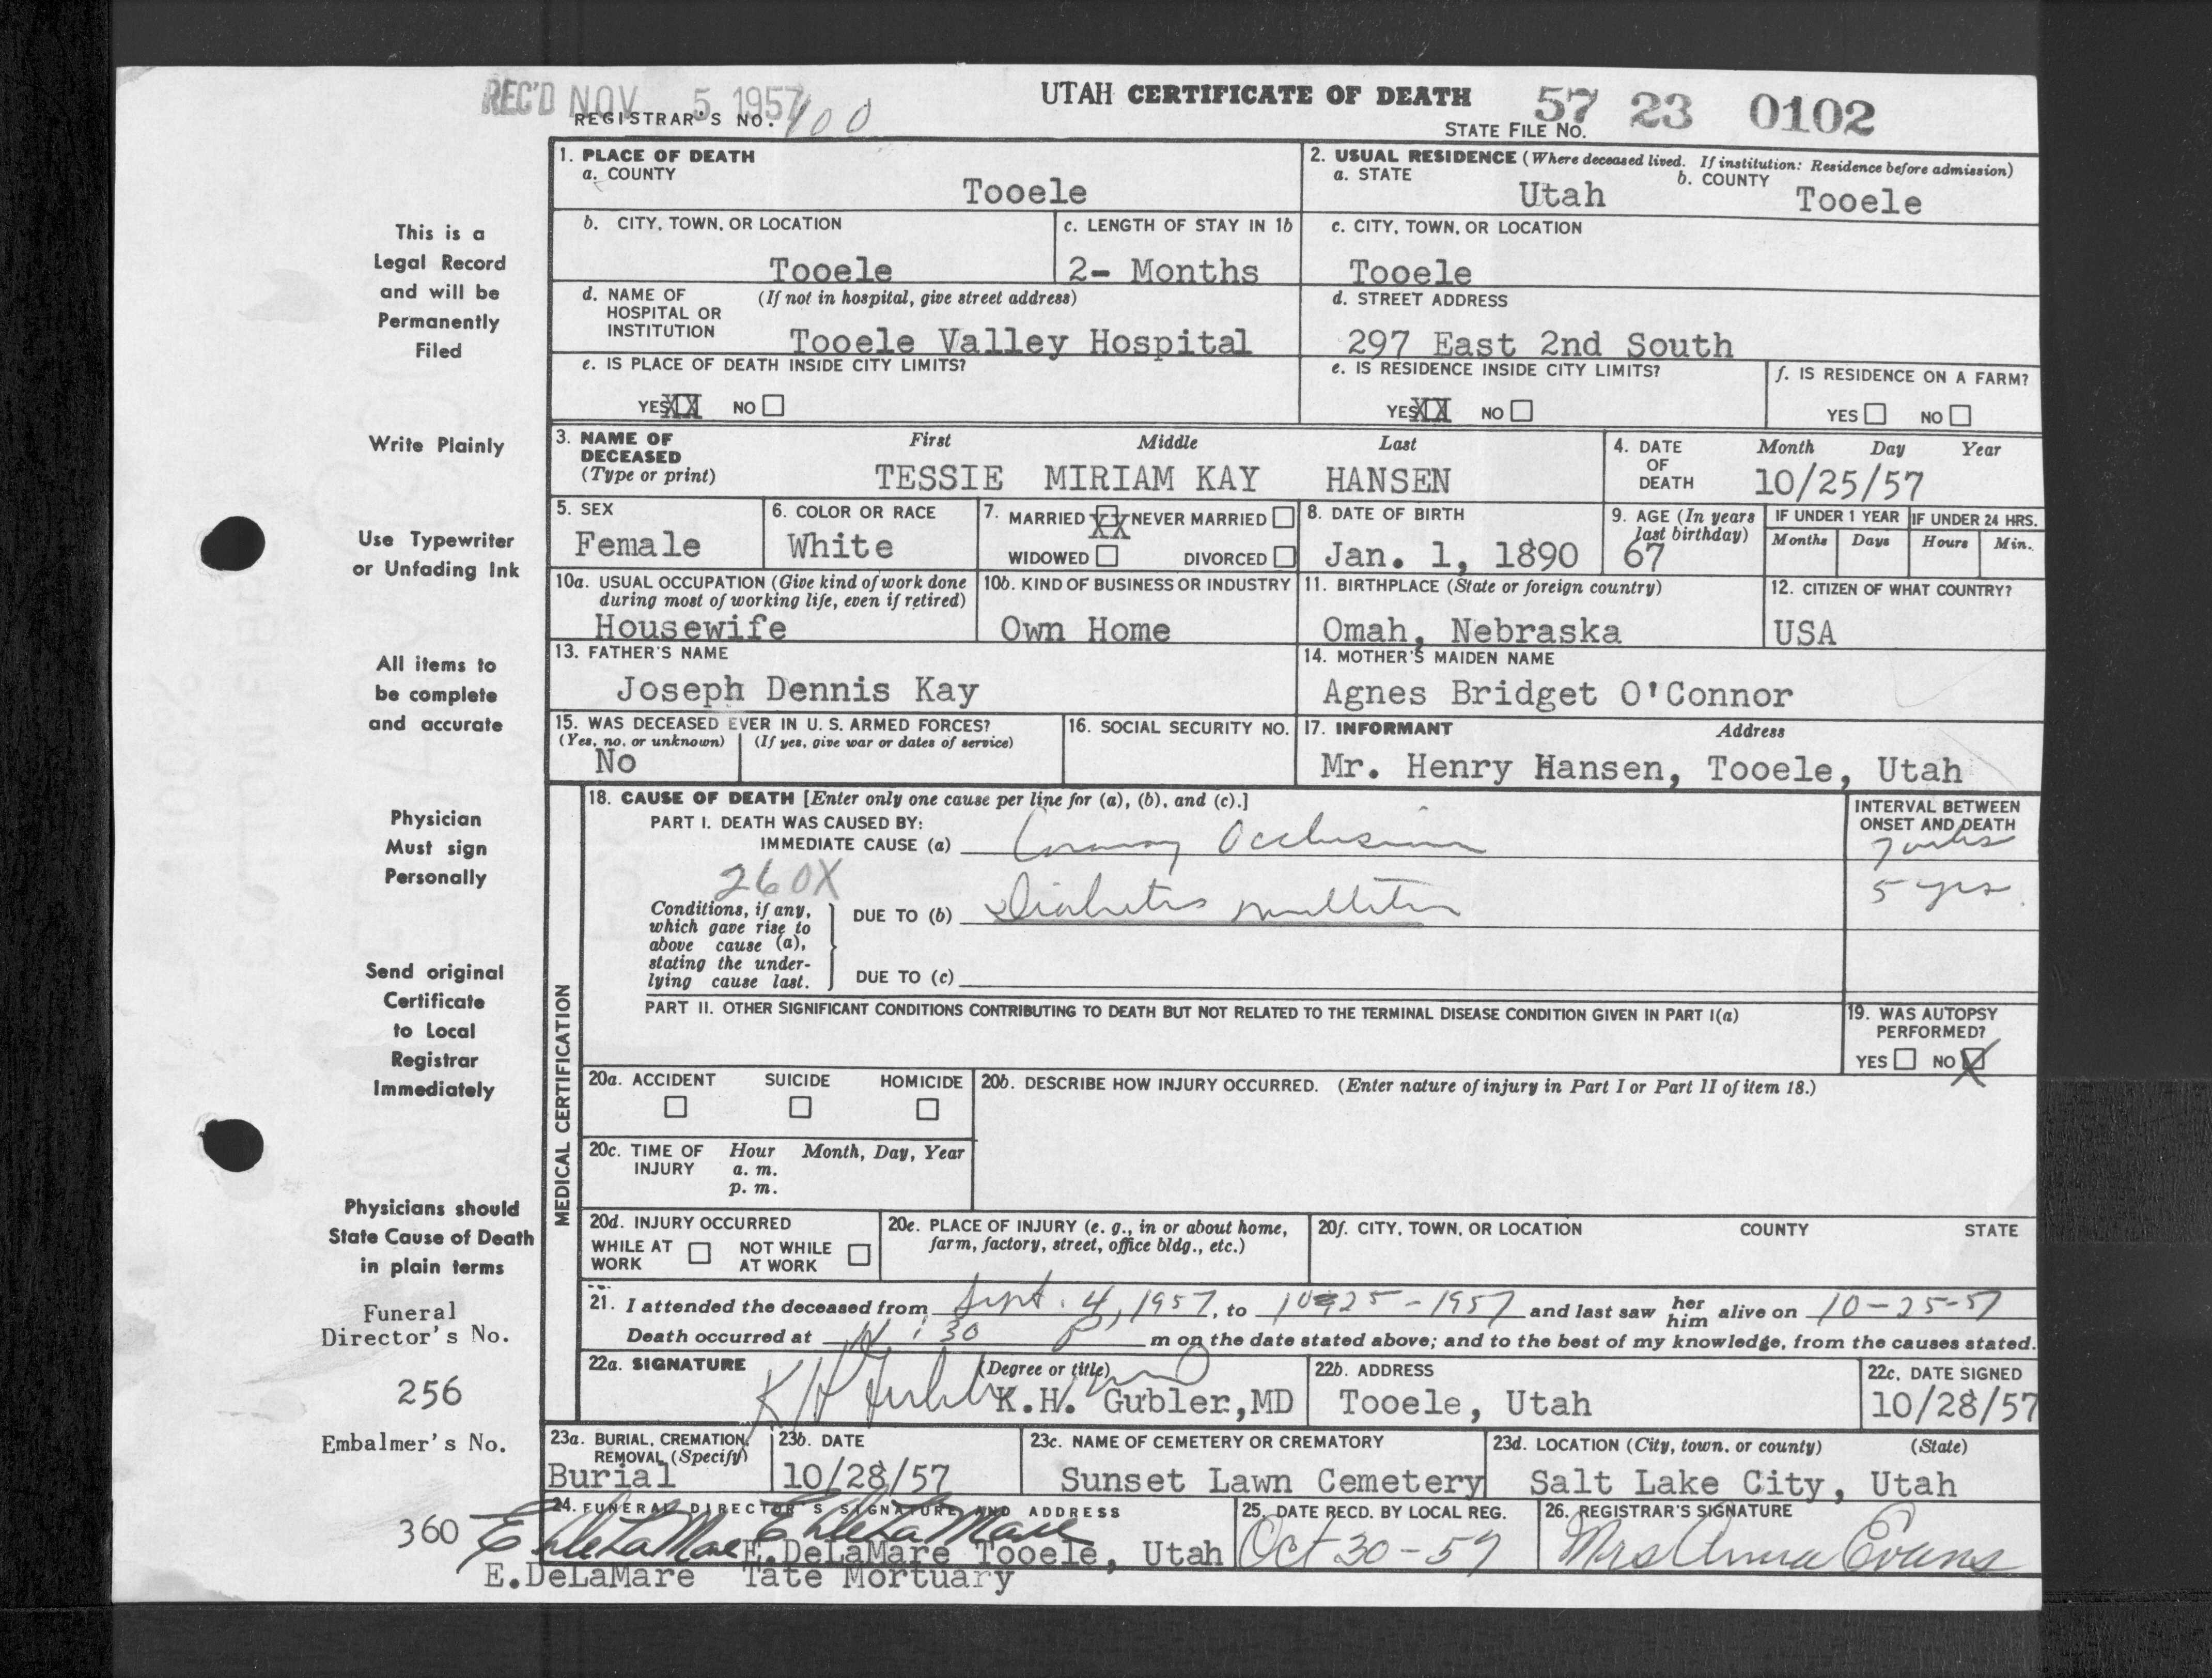 REC'D NOV 5 1957
REGISTRAR'S NO. 100
UTAH CERTIFICATE OF DEATH
STATE FILE NO. 57 23 0102
This is a
Legal Record
and will be
Permanently
Filed
Write Plainly
Use Typewriter
or Unfading Ink
All items to
be complete
and accurate
Physician
Must sign
Personally
Send original
Certificate
to Local
Registrar
Immediately
Physicians should
State Cause of Death
in plain terms
Funeral
Director's No.
256
Embalmer's No.
360
1. PLACE OF DEATH
a. COUNTY
Tooele
2. USUAL RESIDENCE (Where deceased lived. If institution: Residence before admission)
a. STATE
Utah
b. COUNTY
Tooele
b. CITY, TOWN, OR LOCATION
Tooele
c. LENGTH OF STAY IN 1b
2- Months
c. CITY, TOWN, OR LOCATION
Tooele
d. NAME OF (If not in hospital, give street address)
HOSPITAL OR
INSTITUTION
Tooele Valley Hospital
d. STREET ADDRESS
297 East 2nd South
e. IS PLACE OF DEATH INSIDE CITY LIMITS?
YES XX NO
e. IS RESIDENCE INSIDE CITY LIMITS?
YES XX NO
f. IS RESIDENCE ON A FARM?
YES NO
3. NAME OF
DECEASED
(Type or print)
First Middle Last
TESSIE MIRIAM KAY HANSEN
4. DATE
OF
DEATH
Month Day Year
10/25/57
5. SEX
Female
6. COLOR OR RACE
White
7. MARRIED XX NEVER MARRIED
WIDOWED DIVORCED
8. DATE OF BIRTH
Jan. 1, 1890
9. AGE (In years
last birthday)
67
IF UNDER 1 YEAR
Months Days
IF UNDER 24 HRS.
Hours Min.
10a. USUAL OCCUPATION (Give kind of work done
during most of working life, even if retired)
Housewife
10b. KIND OF BUSINESS OR INDUSTRY
Own Home
11. BIRTHPLACE (State or foreign country)
Omah, Nebraska
12. CITIZEN OF WHAT COUNTRY?
USA
13. FATHER'S NAME
Joseph Dennis Kay
14. MOTHER'S MAIDEN NAME
Agnes Bridget O'Connor
15. WAS DECEASED EVER IN U. S. ARMED FORCES?
(Yes, no, or unknown) (If yes, give war or dates of service)
No
16. SOCIAL SECURITY NO.
17. INFORMANT Address
Mr. Henry Hansen, Tooele, Utah
MEDICAL CERTIFICATION
18. CAUSE OF DEATH [Enter only one cause per line for (a), (b), and (c).]
PART I. DEATH WAS CAUSED BY:
IMMEDIATE CAUSE (a) Coronary Occlusion
INTERVAL BETWEEN
ONSET AND DEATH
260X
Conditions, if any,
which gave rise to
above cause (a),
stating the under-
lying cause last.
DUE TO (b) Diabetes mellitus
5 yrs.
DUE TO (c)
PART II. OTHER SIGNIFICANT CONDITIONS CONTRIBUTING TO DEATH BUT NOT RELATED TO THE TERMINAL DISEASE CONDITION GIVEN IN PART I(a)
19. WAS AUTOPSY
PERFORMED?
YES NO X
20a. ACCIDENT SUICIDE HOMICIDE
20b. DESCRIBE HOW INJURY OCCURRED. (Enter nature of injury in Part I or Part II of item 18.)
20c. TIME OF Hour Month, Day, Year
INJURY a. m.
p. m.
20d. INJURY OCCURRED
WHILE AT NOT WHILE
WORK AT WORK
20e. PLACE OF INJURY (e. g., in or about home,
farm, factory, street, office bldg., etc.)
20f. CITY, TOWN, OR LOCATION COUNTY STATE
21. I attended the deceased from Sept. 4, 1957, to 10-25-1957 and last saw her him alive on 10-25-57
Death occurred at :30 P. m on the date stated above; and to the best of my knowledge, from the causes stated.
22a. SIGNATURE (Degree or title)
K H Gubler MD
K.H. Gubler, MD
22b. ADDRESS
Tooele, Utah
22c. DATE SIGNED
10/28/57
23a. BURIAL, CREMATION,
REMOVAL (Specify)
Burial
23b. DATE
10/28/57
23c. NAME OF CEMETERY OR CREMATORY
Sunset Lawn Cemetery
23d. LOCATION (City, town, or county) (State)
Salt Lake City, Utah
24. FUNERAL DIRECTOR'S SIGNATURE AND ADDRESS
E DeLaMare E DeLaMare
E.DeLaMare Tooele, Utah
E.DeLaMare Tate Mortuary
25. DATE RECD. BY LOCAL REG.
Oct 30-57
26. REGISTRAR'S SIGNATURE
Mrs Anna Evans